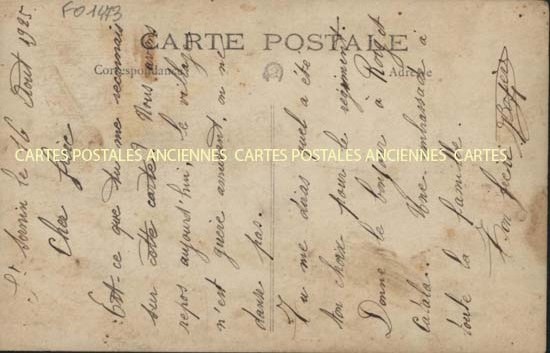 FO1473
CARTE POSTALE
Correspondance
Adresse
CARTES POSTALES ANCIENNES CARTES POSTALES ANCIENNES CARTES
St Sornin le 6 Août 1925
Cher frère
Est ce que tu me reconnais
sur cette carte? Nous avons
repos aujourd'hui, le village
n'est guère amusant, on n'y
danse pas.
Tu me diras quel a été
ton choix pour le régiment
Donne le bonjour à Roy et
Catala. Une embrassade à
toute la famille.
Ton frère